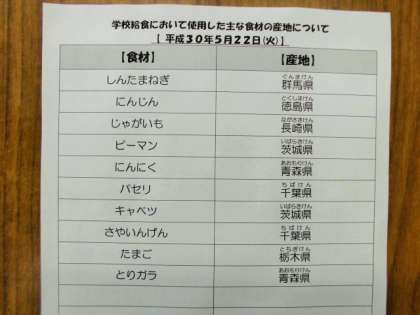 学校給食において使用した主な食材の産地について
【 平成30年5月22日(火) 】
【食材】 【産地】
しんたまねぎ 群馬県 ぐんまけん
にんじん 徳島県 とくしまけん
じゃがいも 長崎県 ながさきけん
ピーマン 茨城県 いばらきけん
にんにく 青森県 あおもりけん
パセリ 千葉県 ちばけん
キャベツ 茨城県 いばらきけん
さやいんげん 千葉県 ちばけん
たまご 栃木県 とちぎけん
とりガラ 青森県 あおもりけん